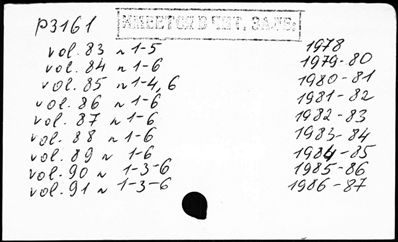 р3161
ИМЕЕТСЯ В ЧИТ. ЗАЛЕ
vol. 83 n 1-5 1978
vol. 84 n 1-6 1979-80
vol. 85 n 1-4, 6 1980-81
vol. 86 n 1-6 1981-82
vol. 87 n 1-6 1982-83
vol. 88 n 1-6 1983-84
vol. 89 n 1-6 1984-85
vol. 90 n 1-3-6 1985-86
vol. 91 n 1-3-6 1986-87